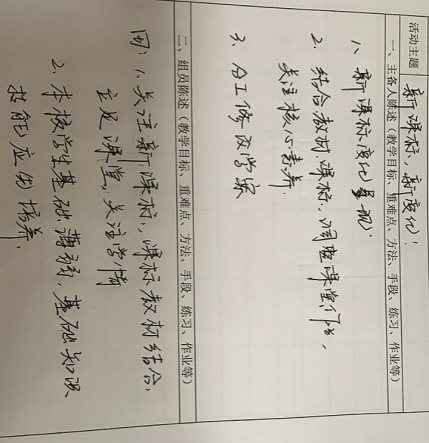 活动主题 新课标，新变化！
一、主备人陈述（教学目标、重难点、方法、手段、练习、作业等）
1、新课标变化呈现：
2、结合教材、课标，调整课堂
关注核心素养
3、分工修改学案
二、组员陈述（教学目标、重难点、方法、手段、练习、作业等）
1、关注新课标，课标教材结合，
立足课堂，关注学情
2、本校学生基础薄弱，基础知识
技能应的培养，